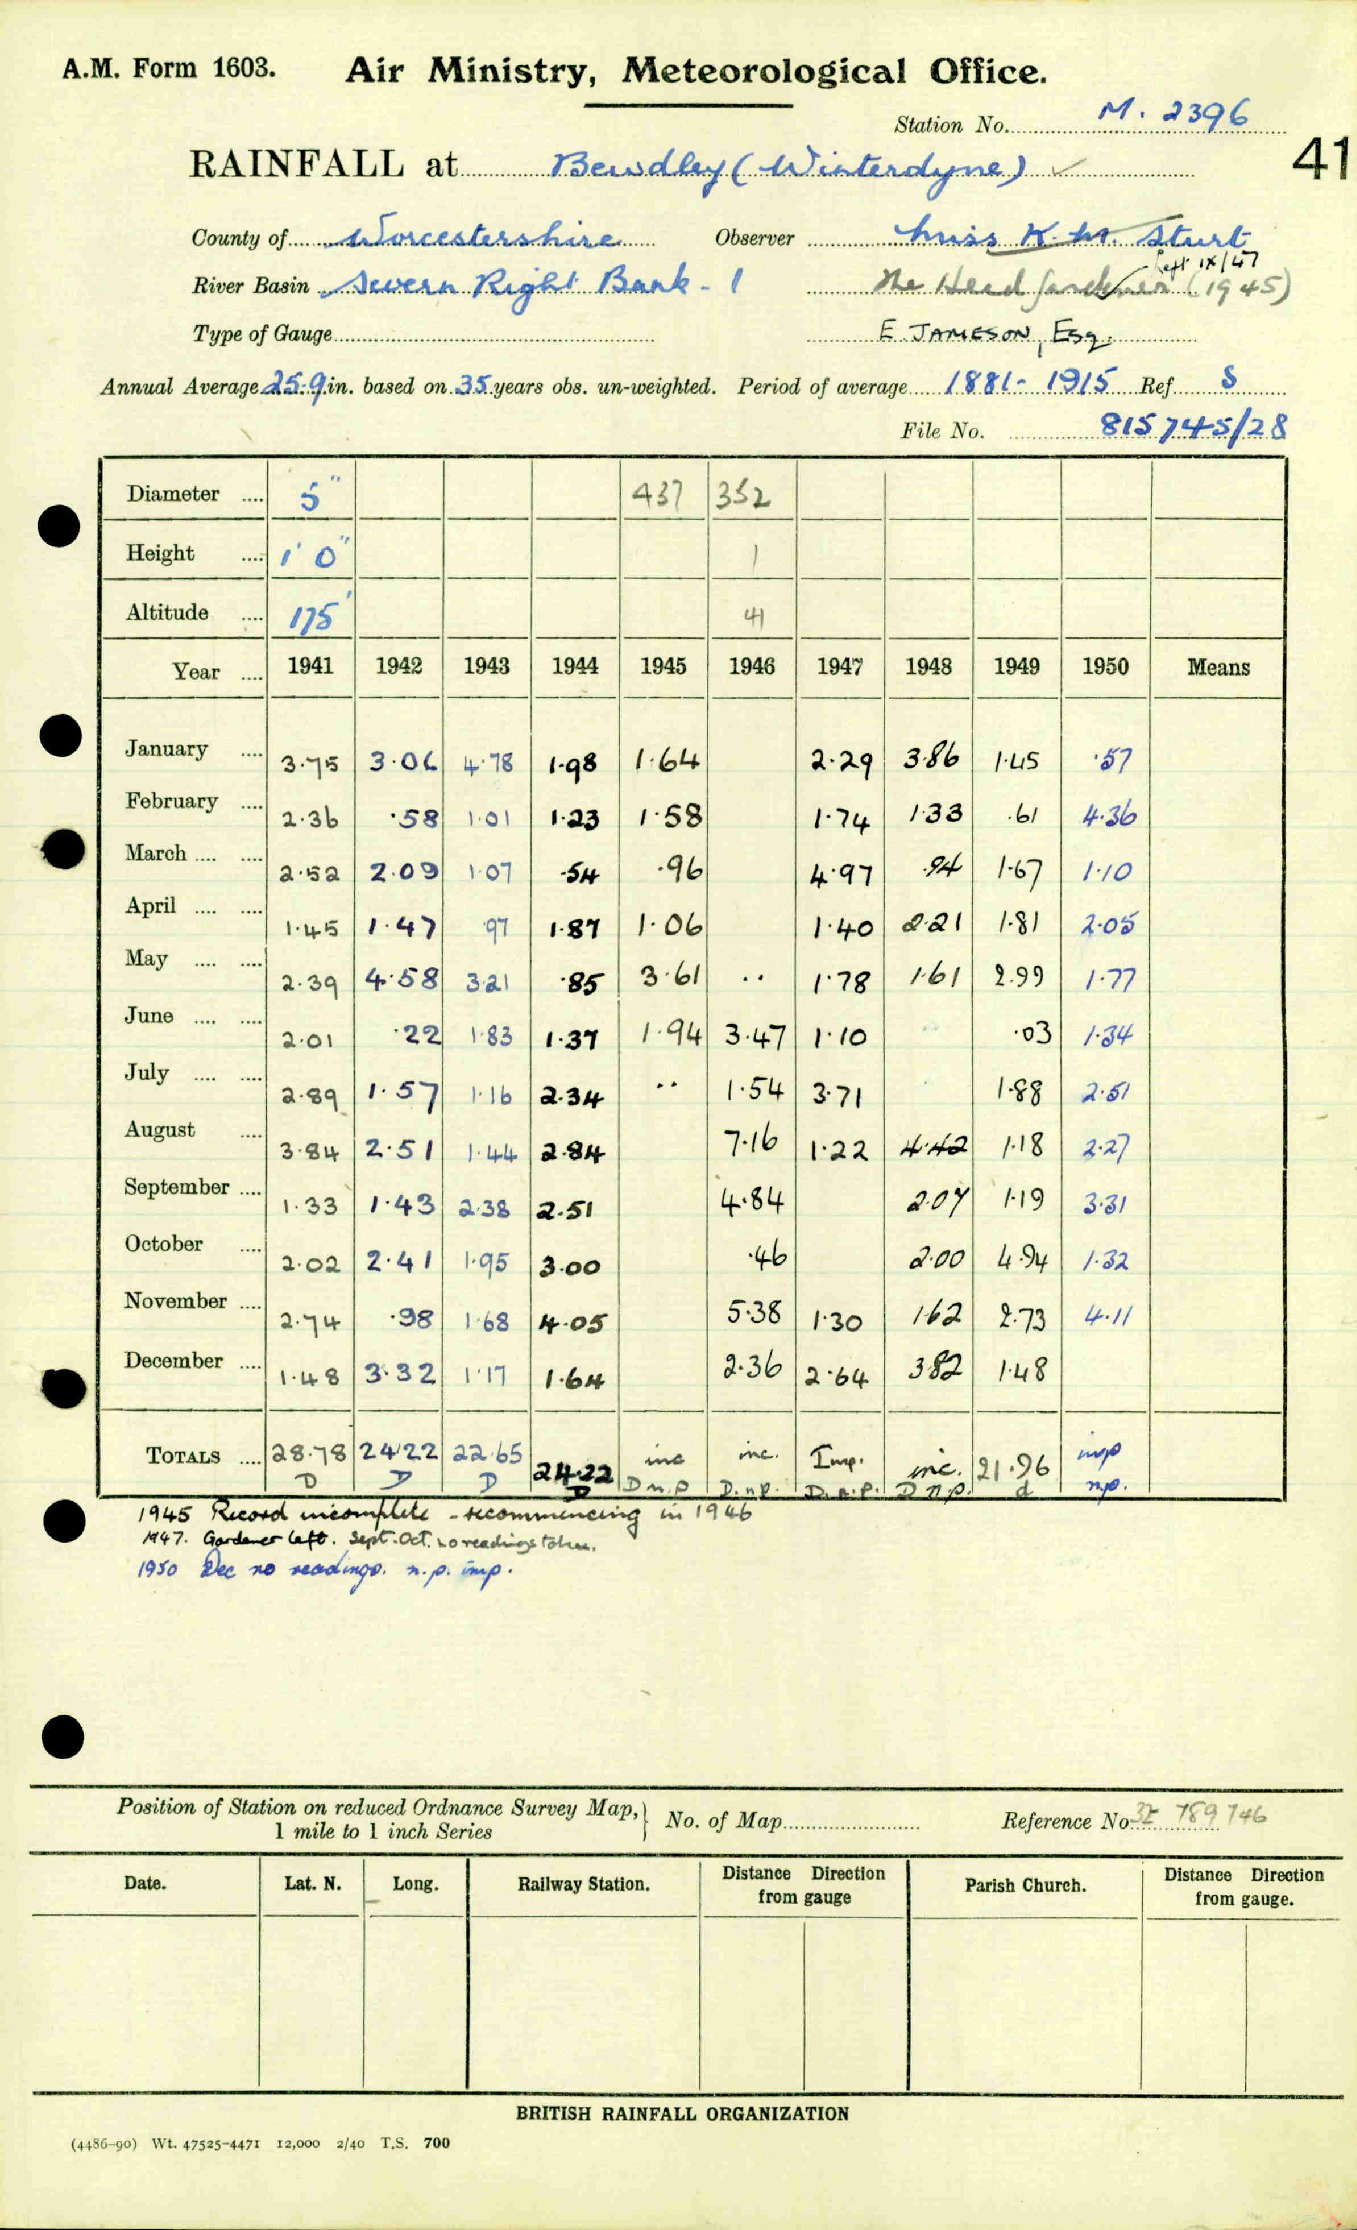 A.M. Form 1603. Air Ministry, Meteorological Office.
Station No. M. 2396
41
RAINFALL at Bewdley (Winterdyne) ✓
County of Worcestershire Observer Miss K. M. Sturt
Left IX/47
River Basin Severn Right Bank - 1 The Head Gardener (1945)
Type of Gauge E. JAMESON, Esq.
Annual Average 25.9 in. based on 35 years obs. un-weighted. Period of average 1881-1915 Ref. S
File No. 815745/28
Diameter .... 5" 437 352
Height .... 1' 0" 1
Altitude .... 175' 41
Year .... 1941 1942 1943 1944 1945 1946 1947 1948 1949 1950 Means
January .... 3.75 3.06 4.78 1.98 1.64 2.29 3.86 1.45 .57
February .... 2.36 .58 1.01 1.23 1.58 1.74 1.33 .61 4.36
March .... .... 2.52 2.09 1.07 .54 .96 4.97 .94 1.67 1.10
April .... .... 1.45 1.47 .97 1.87 1.06 1.40 2.21 1.81 2.05
May .... .... 2.39 4.58 3.21 .85 3.61 .. 1.78 1.61 2.99 1.77
June .... .... 2.01 .22 1.83 1.37 1.94 3.47 1.10 .03 1.34
July .... .... 2.89 1.57 1.16 2.34 .. 1.54 3.71 1.88 2.51
August .... 3.84 2.51 1.44 2.84 7.16 1.22 4.42 1.18 2.27
September .... 1.33 1.43 2.38 2.51 4.84 2.07 1.19 3.31
October .... 2.02 2.41 1.95 3.00 .46 2.00 4.94 1.32
November .... 2.74 .98 1.68 4.05 5.38 1.30 1.62 2.73 4.11
December .... 1.48 3.32 1.17 1.64 2.36 2.64 3.82 1.48
TOTALS .... 28.78 24.22 22.65 24.22 inc inc. Imp. inc. 21.96 imp
D D D D D n p D. n p. D. n. p. D n p. d np.
1945 Record incomplete - recommencing in 1946
1947. Gardener left. Sept. Oct. no readings taken.
1950 Dec no readings. n.p. imp.
Position of Station on reduced Ordnance Survey Map, 1 mile to 1 inch Series No. of Map Reference No. 32 789746
Date. Lat. N. Long. Railway Station. Distance Direction from gauge Parish Church. Distance Direction from gauge.
BRITISH RAINFALL ORGANIZATION
(4486-90) Wt. 47525-4471 12,000 2/40 T.S. 700